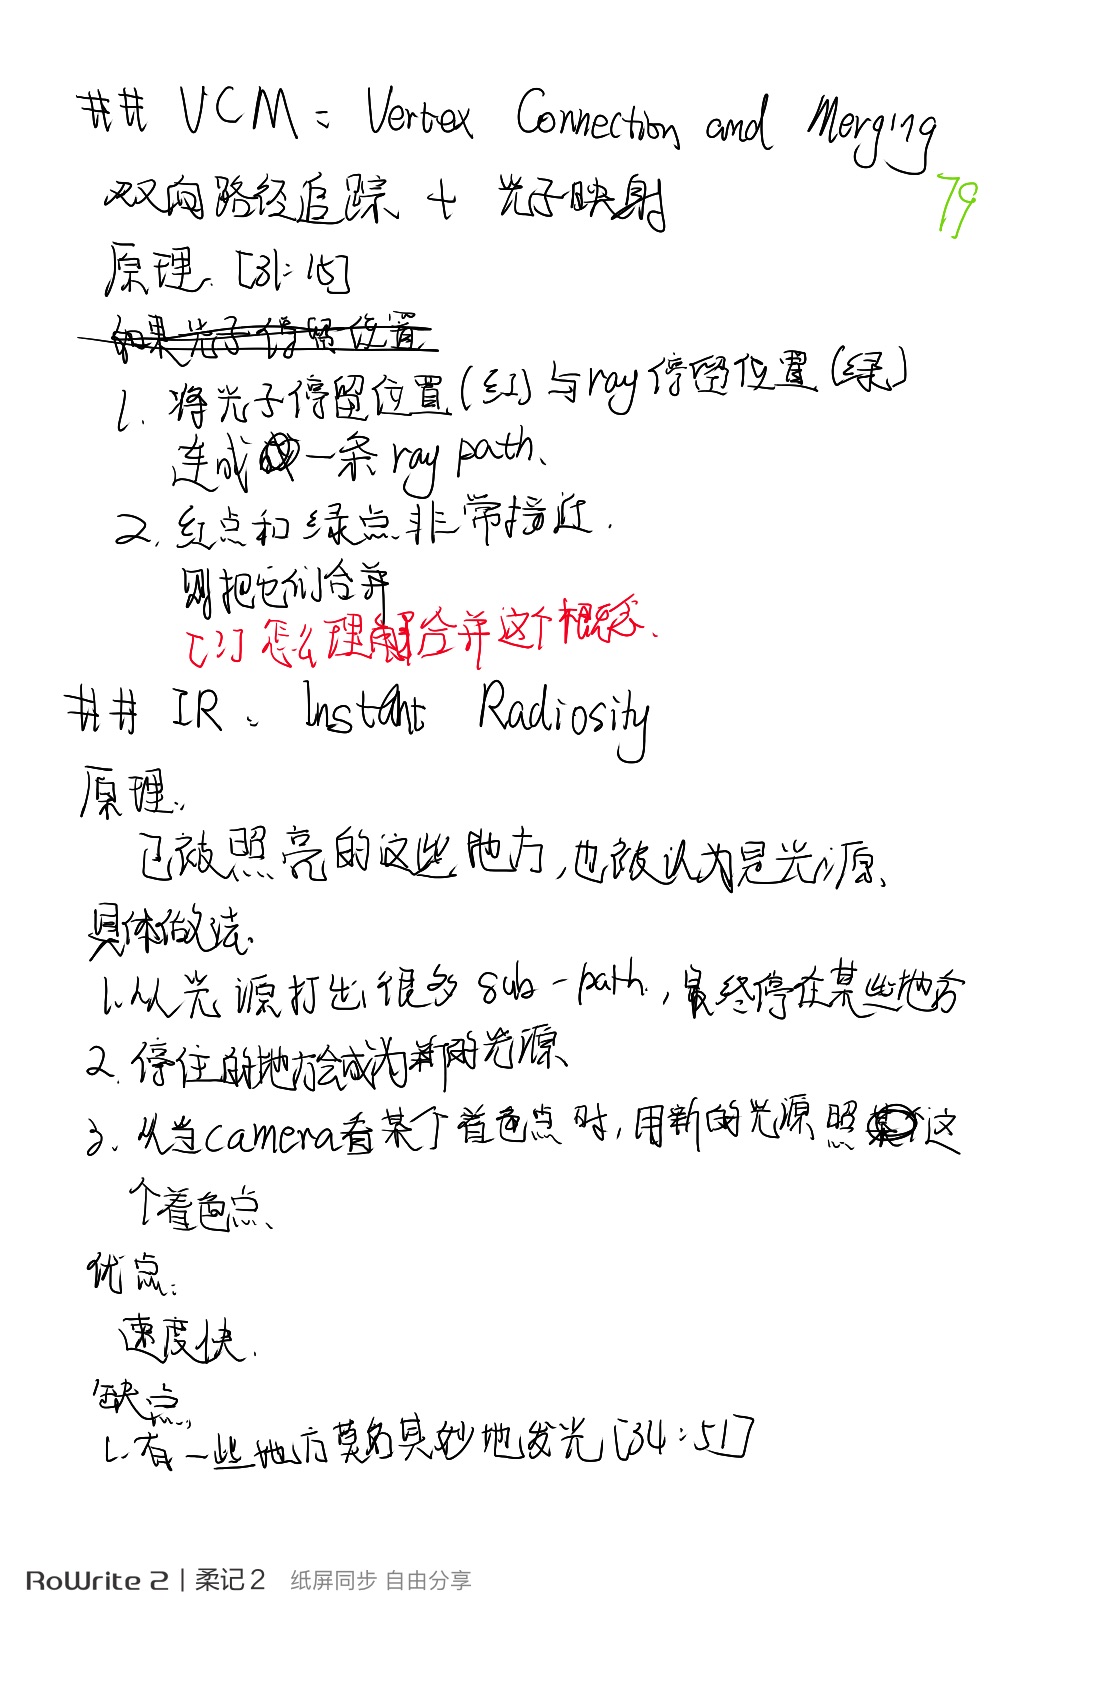 ## VCM: Vertex Connection and Merging
79
双向路径追踪 + 光子映射
原理. [31:15]
如果光子停留位置
1. 将光子停留位置(红)与ray停留位置(绿)
连成一条ray path、
2. 红点和绿点非常接近.
则把它们合并
[?] 怎么理解合并这个概念.
## IR、Instant Radiosity
原理:
已被照亮的这些地方,也被认为是光源、
具体做法:
1.从光源打出很多sub-path,最终停在某些地方
2.停住的地方会成为新的光源、
3.从当camera看某个着色点时,用新的光源照这
个着色点、
优点:
速度快.
缺点:
1.有一些地方莫名其妙地发光[34:51]
RoWrite 2 | 柔记2 纸屏同步 自由分享